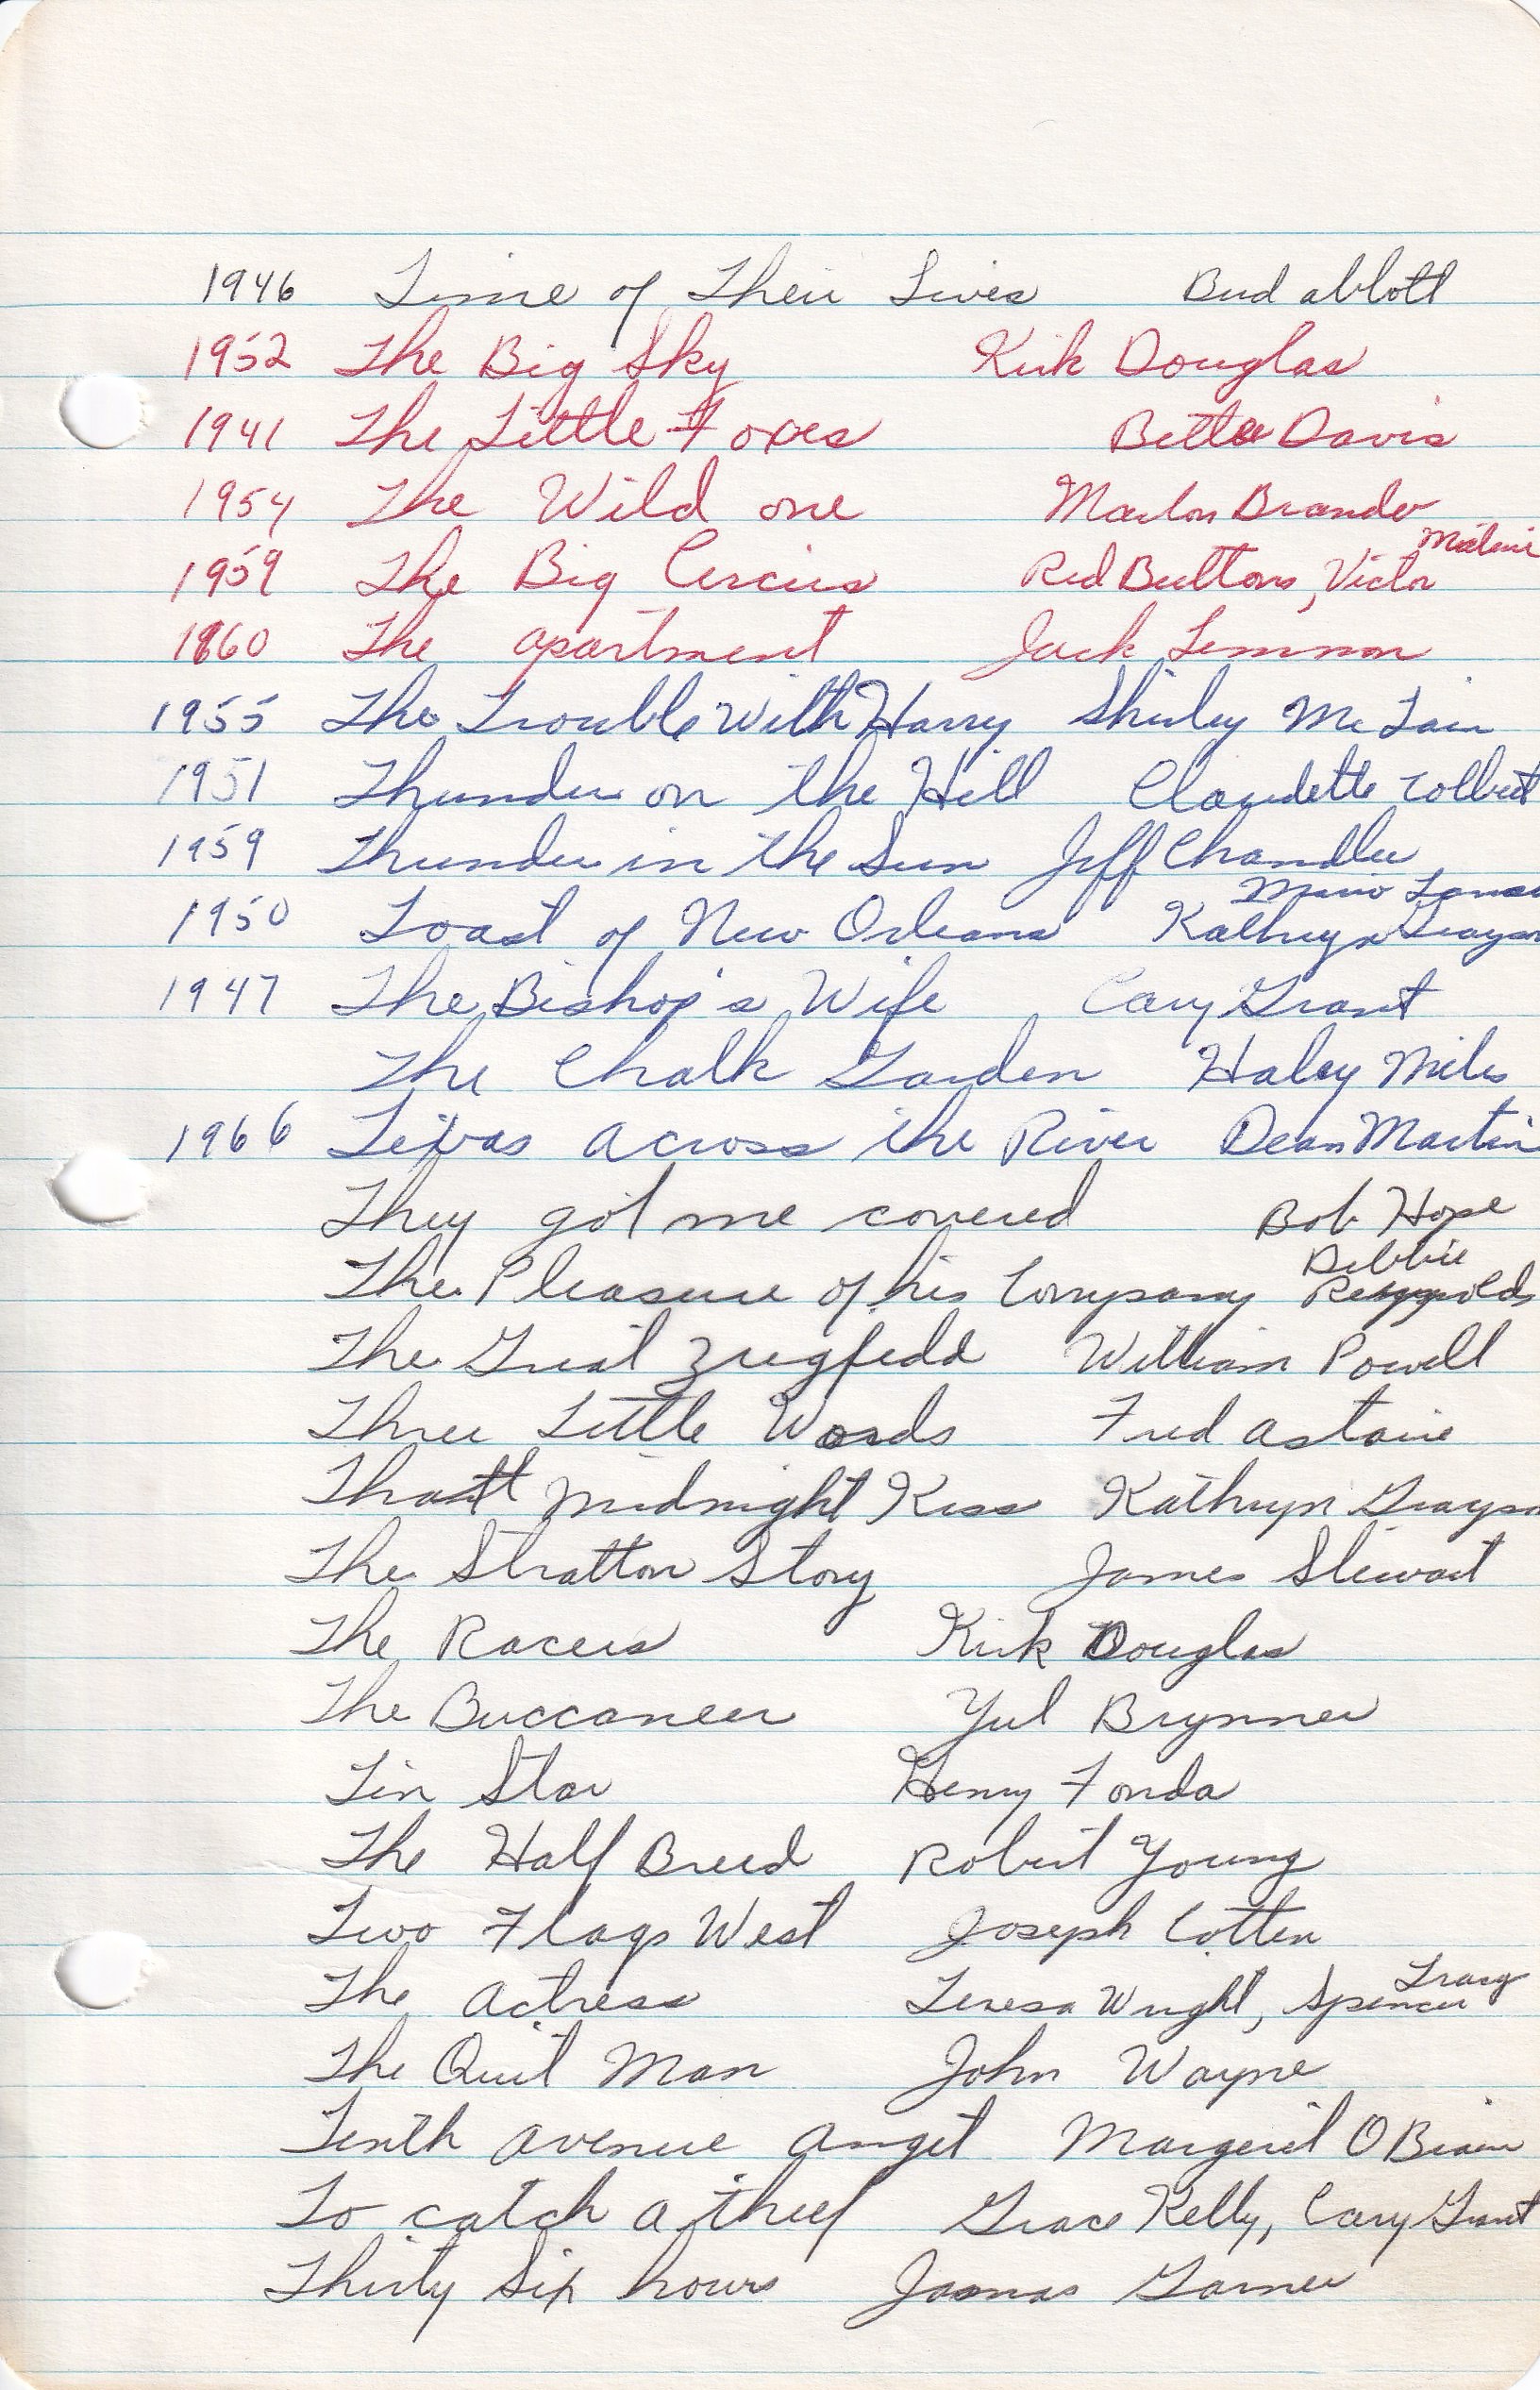 1946 Time of Their Lives Bud abbott
1952 The Big Sky Kirk Douglas
1941 The Little Foxes Bette Davis
1954 The Wild one Marlon Brando
1959 The Big Circus Red Buttons, Victor Mature
1960 The apartment Jack Lemmon
1955 The Trouble With Harry Shirley McLain
1951 Thunder on the Hill Claudette Colbert
1959 Thunder in the Sun Jeff Chandler
Mario
1950 Toast of New Orleans Kathryn Grayson
1947 The Bishop's Wife Cary Grant
The Chalk Garden Haley Miles
1966 Texas across the River Dean Martin
They got me covered Bob Hope
The Pleasure of his Company Debbie Reynolds
The Great Ziegfedd William Powell
Three Little Words Fred astaire
That Midnight Kiss Kathryn Grayson
The Stratton Story James Stewart
The Racers Kirk Douglas
The Buccaneer Yul Brynner
Tin Star Henry Fonda
The Half Breed Robert Young
Two Flags West Joseph Cotten
The actress Teresa Wright, Spencer Tracy
The Quit Man John Wayne
Tenth avenue angel Margeret O Brien
To catch a thief Grace Kelly, Cary Grant
Thirty Six hours Garner